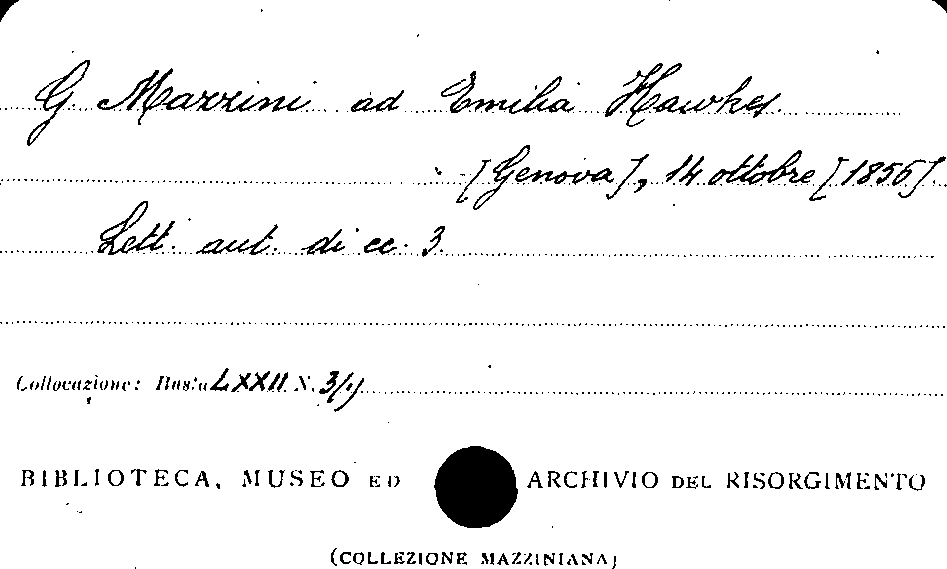 G. Mazzini ad Emilia Hawkes.
[Genova], 14 ottobre [1856].
Lett. aut. di cc. 3.
Collocazione: Busta LXXII N. 3/1)
BIBLIOTECA, MUSEO ED ARCHIVIO DEL RISORGIMENTO
(COLLEZIONE MAZZINIANA)